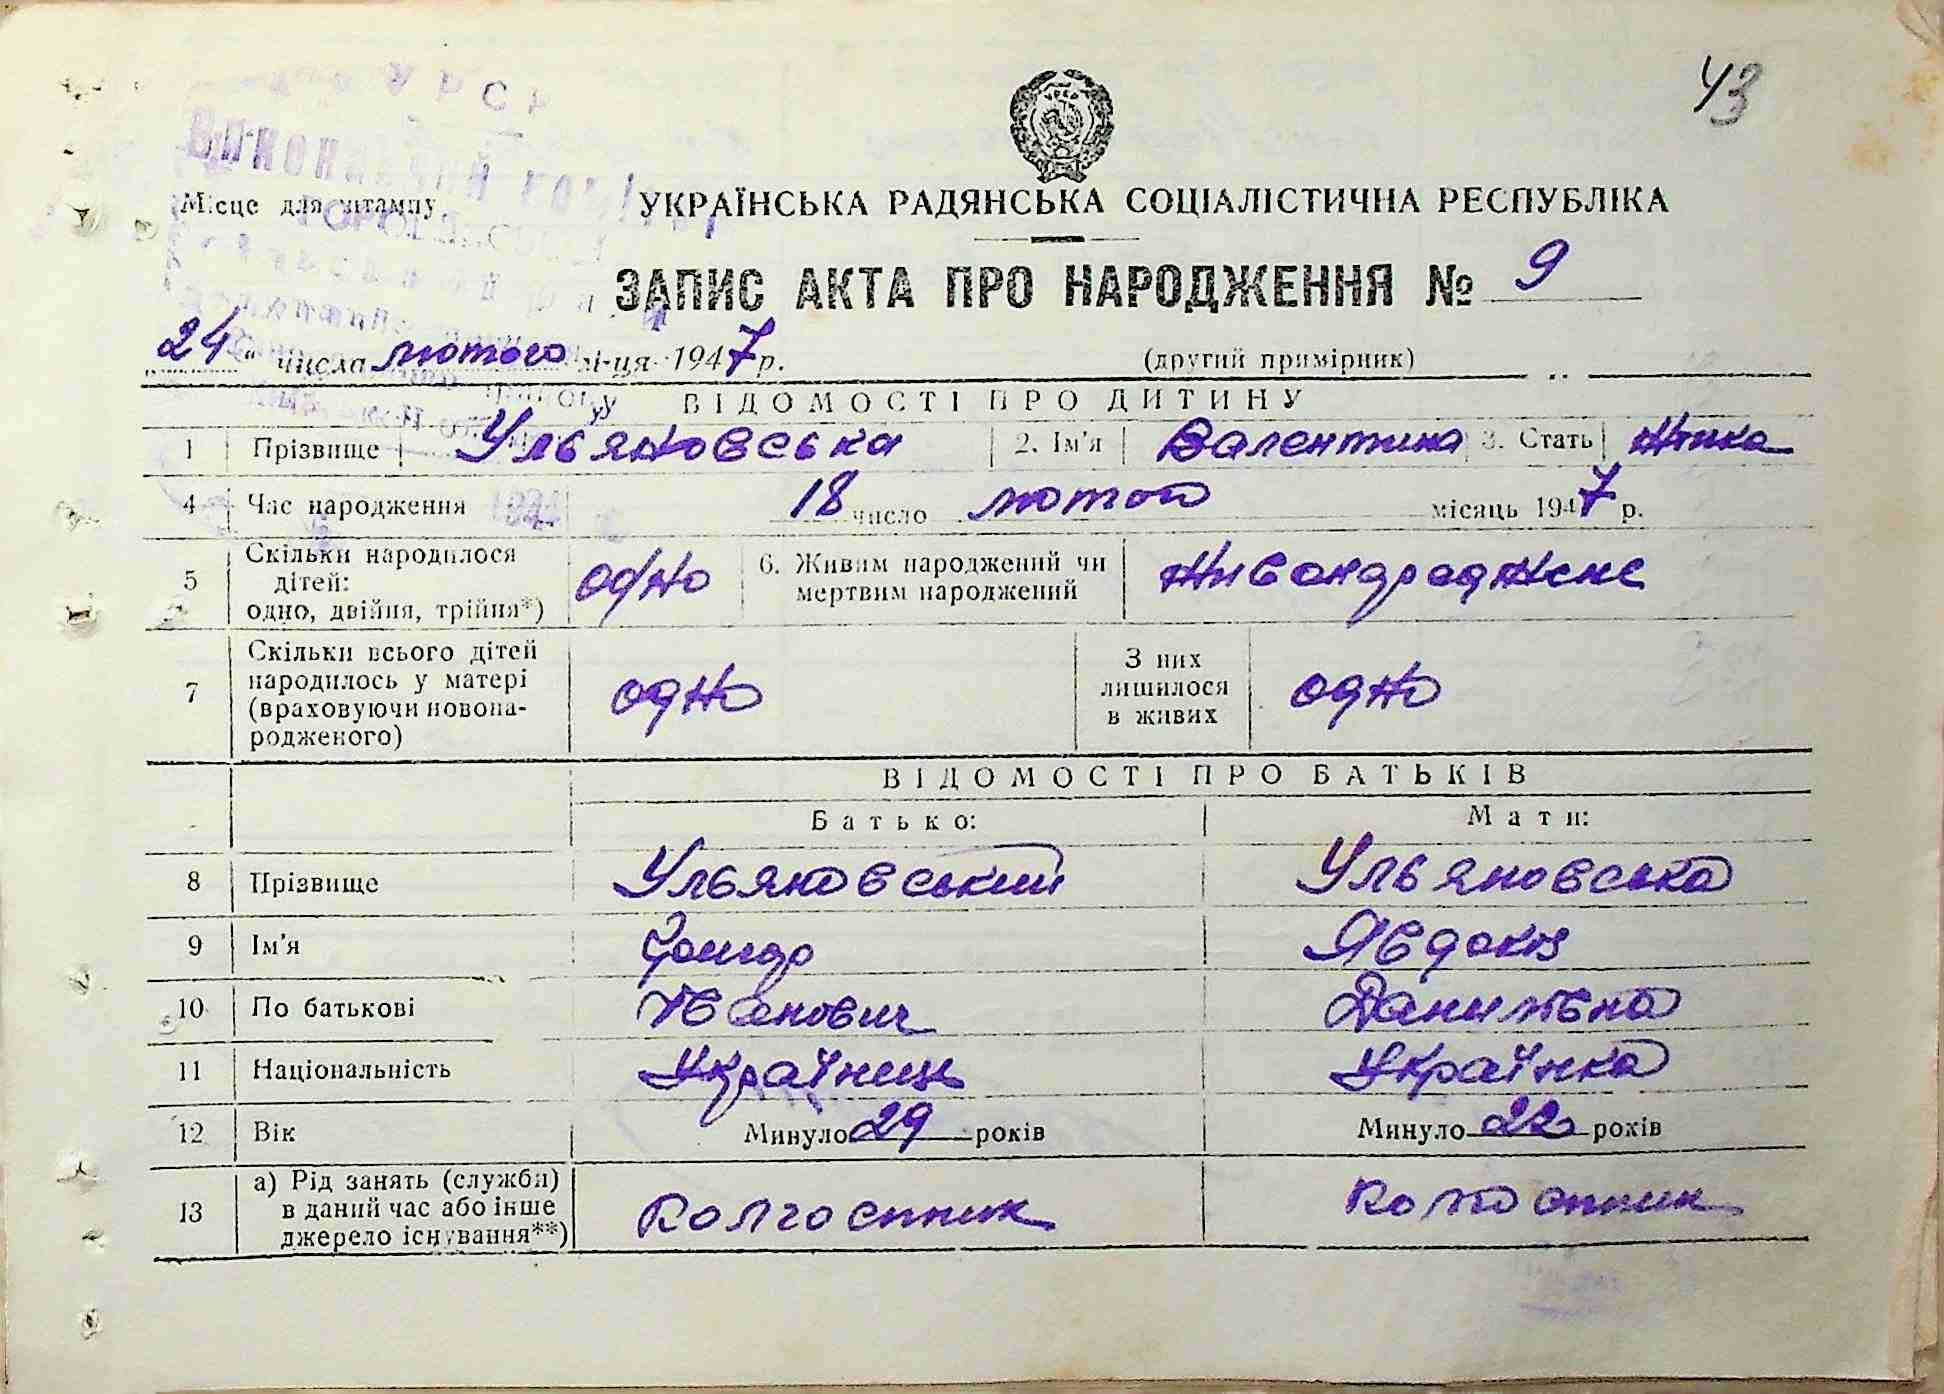 43
УРСР
Виконавчий комітет
Місце для штампу
УКРАЇНСЬКА РАДЯНСЬКА СОЦІАЛІСТИЧНА РЕСПУБЛІКА
ЗАПИС АКТА ПРО НАРОДЖЕННЯ № 9
24 " числа лютого м-ця 1947 р. (другий примірник)
ВІДОМОСТІ ПРО ДИТИНУ
1 Прізвище Ульяновська 2. Ім'я Валентина 3. Стать
4 Час народження 18 число лютого місяць 1947 р.
5 Скільки народилося дітей: одно, двійня, трійня*) одно 6. Живим народжений чи мертвим народжений
7 Скільки всього дітей народилось у матері (враховуючи новонародженого) одно З них лишилося в живих одно
ВІДОМОСТІ ПРО БАТЬКІВ
Батько: Мати:
8 Прізвище Ульяновський Ульяновська
9 Ім'я Явдокія
10 По батькові Іванович Данилівна
11 Національність Українець Українка
12 Вік Минуло 29 років Минуло 22 років
13 а) Рід занять (служби) в даний час або інше джерело існування**) Колгоспник Колгоспник